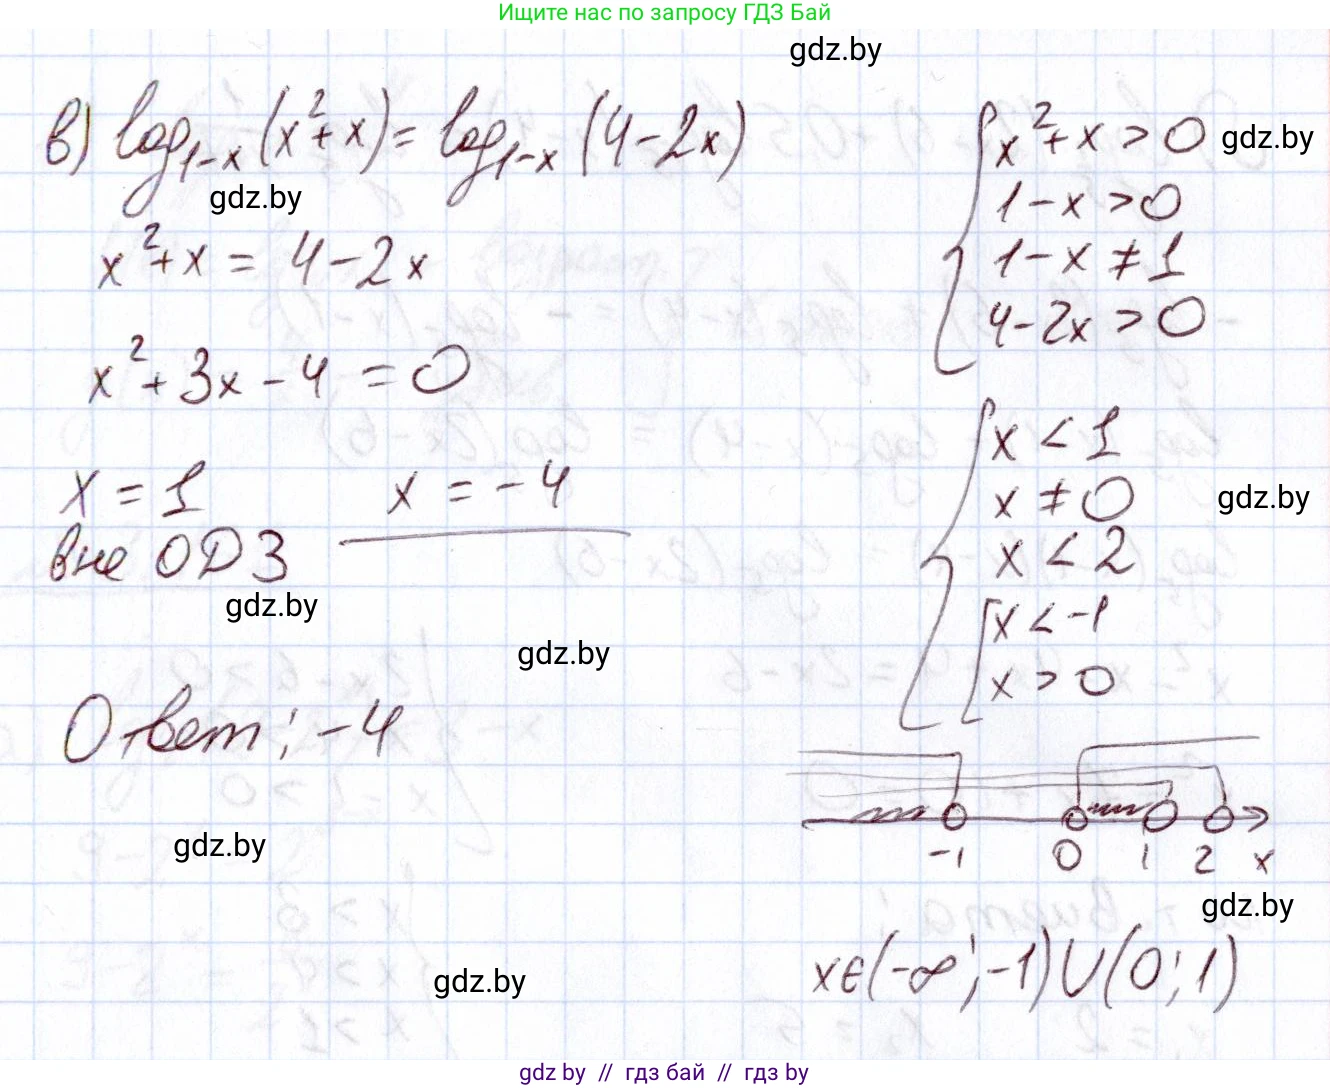 Ищите нас по запросу ГДЗ Бай
gdz.by
в) log₁₋ₓ(x²+x) = log₁₋ₓ(4-2x)
gdz.by
x²+x = 4-2x
x²+3x-4 = 0
x = 1
x = -4
вне ОДЗ
gdz.by
gdz.by
Ответ: -4
gdz.by
gdz.by
x²+x > 0
gdz.by
1-x > 0
1-x ≠ 1
4-2x > 0
x < 1
x ≠ 0
gdz.by
x < 2
x < -1
x > 0
-1 0 1 2 x
gdz.by
x∈(-∞;-1)∪(0;1)
gdz.by // гдз бай // гдз by